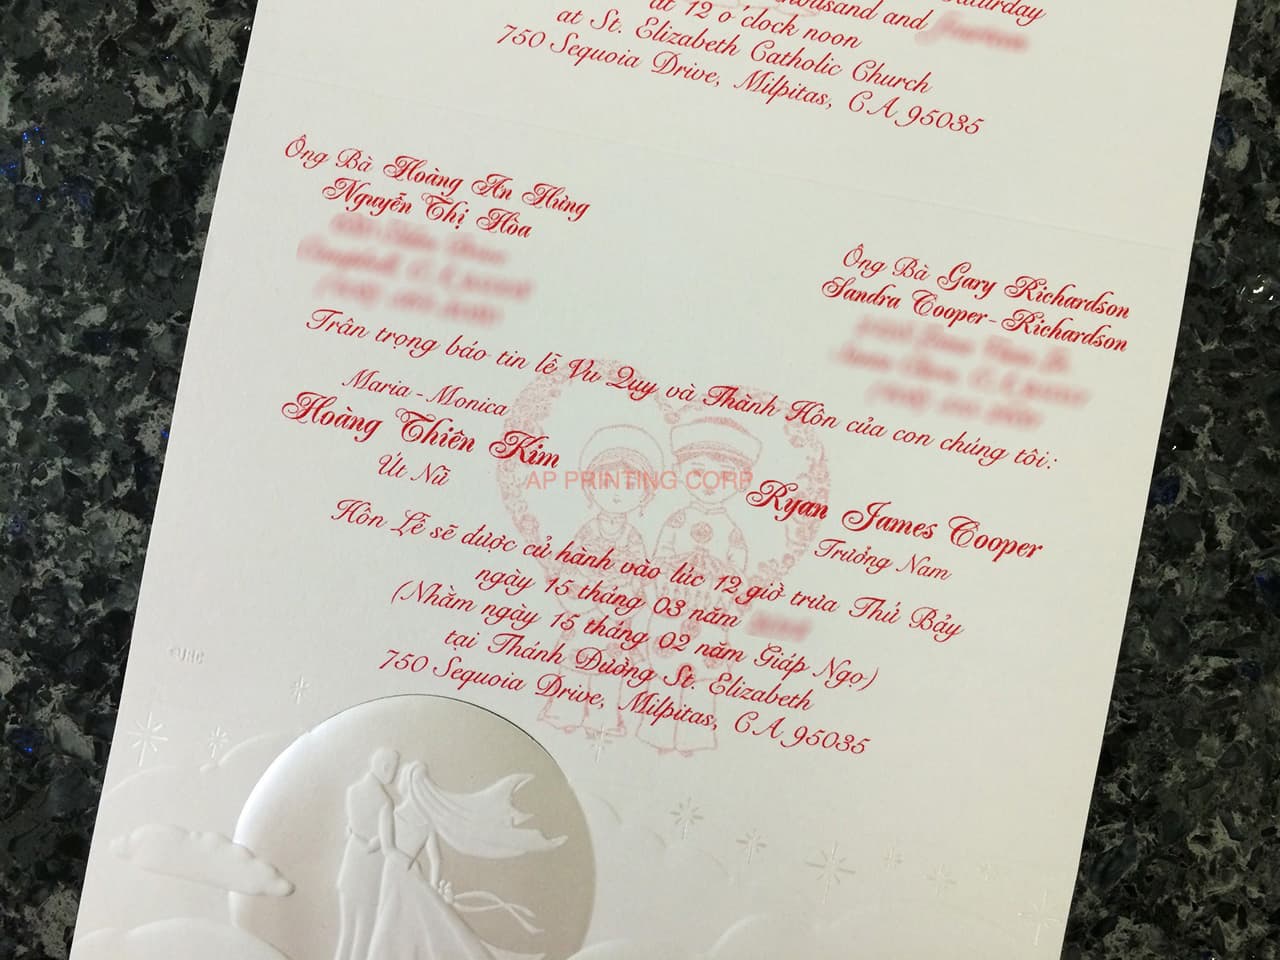 at 12 o'clock noon
at St. Elizabeth Catholic Church
750 Sequoia Drive, Milpitas, CA 95035
Ông Bà Hoàng An Hưng
Nguyễn Thị Hòa
Ông Bà Gary Richardson
Sandra Cooper-Richardson
Trân trọng báo tin lễ Vu Quy và Thành Hôn của con chúng tôi:
Maria-Monica
Hoàng Thiên Kim
Út Nữ
AP PRINTING CORP
Ryan James Cooper
Trưởng Nam
Hôn Lễ sẽ được cử hành vào lúc 12 giờ trưa Thứ Bảy
ngày 15 tháng 03 năm
(Nhằm ngày 15 tháng 02 năm Giáp Ngọ)
tại Thánh Đường St. Elizabeth
750 Sequoia Drive, Milpitas, CA 95035
©JHG